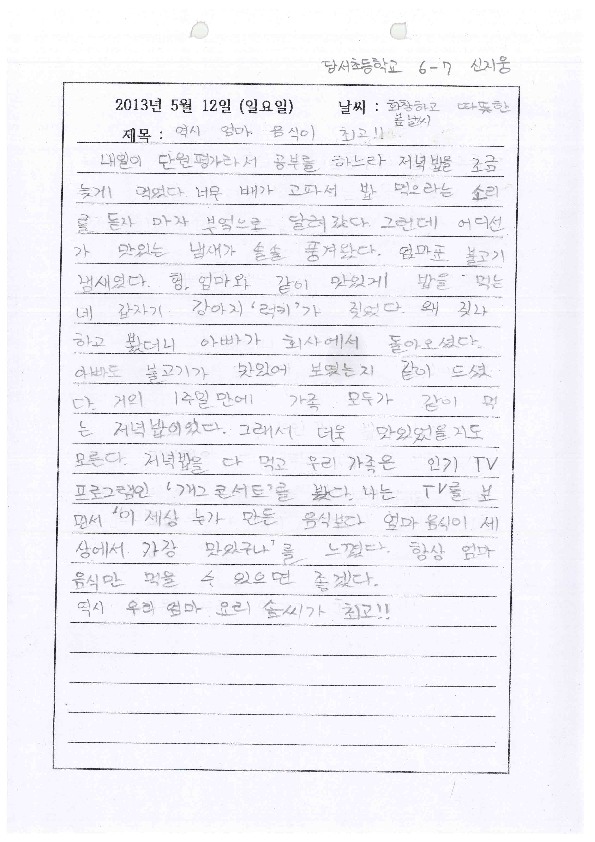 당서초등학교 6-7 신지웅
2013년 5월 12일 (일요일) 날씨 : 화창하고 따뜻한
봄날씨
제목 : 역시 엄마 음식이 최고!!
내일이 단원평가라서 공부를 하느라 저녁밥을 조금
늦게 먹었다. 너무 배가 고파서 밥 먹으라는 소리
를 듣자 마자 부엌으로 달려갔다. 그런데 어디선
가 맛있는 냄새가 솔솔 풍겨왔다. 엄마표 불고기
냄새였다. 형, 엄마와 같이 맛있게 밥을 먹는
데 갑자기 강아지 '럭키'가 짖었다. 왜 짖나
하고 봤더니 아빠가 회사에서 돌아오셨다.
아빠도 불고기가 맛있어 보였는지 같이 드셨
다. 거의 1주일만에 가족 모두가 같이 먹
는 저녁밥이었다. 그래서 더욱 맛있었을지도
모른다. 저녁밥을 다 먹고 우리 가족은 인기 TV
프로그램인 '개그콘서트'를 봤다. 나는 TV를 보
면서 '이 세상 누가 만든 음식보다 엄마 음식이 세
상에서 가장 맛있구나'를 느꼈다. 항상 엄마
음식만 먹을 수 있으면 좋겠다.
역시 우리 엄마 요리 솜씨가 최고!!